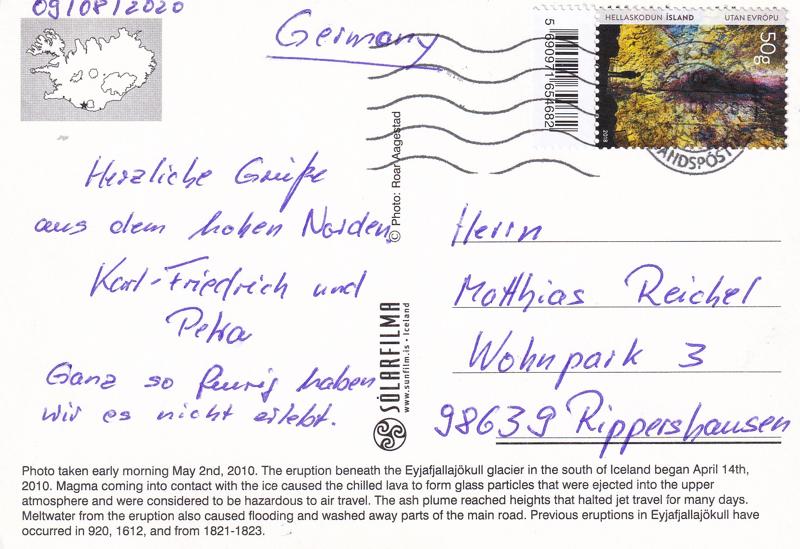 09/08/2020
Germany
HELLASKODUN ÍSLAND UTAN EVRÓPU
50g
2018
5 690971 654682
ANDSPÓST
Herzliche Grüße
aus dem hohen Norden,
Karl-Friedrich und
Petra
Ganz so feurig haben
wir es nicht erlebt.
© Photo: Roar Aagestad
SÓLARFILMA
www.sunfilm.is - Iceland
Herrn
Matthias Reichel
Wohnpark 3
98639 Rippershausen
Photo taken early morning May 2nd, 2010. The eruption beneath the Eyjafjallajökull glacier in the south of Iceland began April 14th,
2010. Magma coming into contact with the ice caused the chilled lava to form glass particles that were ejected into the upper
atmosphere and were considered to be hazardous to air travel. The ash plume reached heights that halted jet travel for many days.
Meltwater from the eruption also caused flooding and washed away parts of the main road. Previous eruptions in Eyjafjallajökull have
occurred in 920, 1612, and from 1821-1823.